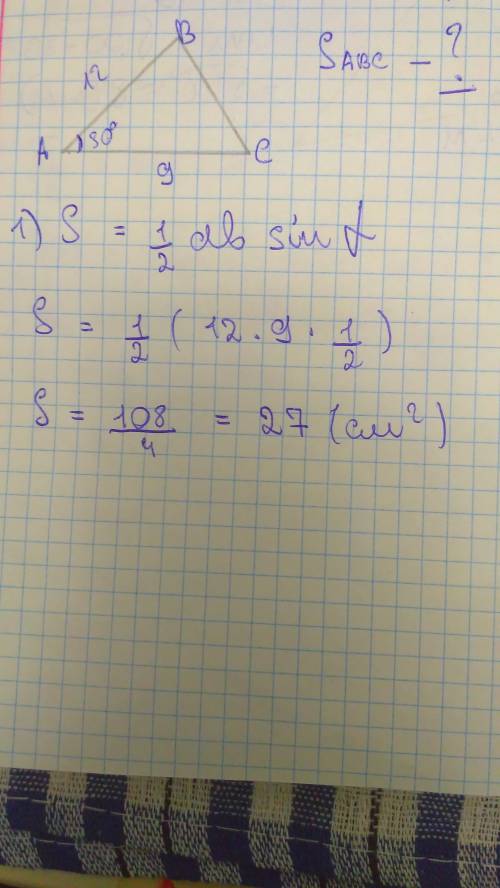 B
S_ABC — ?
12
A 30° C
9
1) S = 1/2 ab sin α
S = 1/2 ( 12 · 9 · 1/2 )
S = 108/4 = 27 (см²)